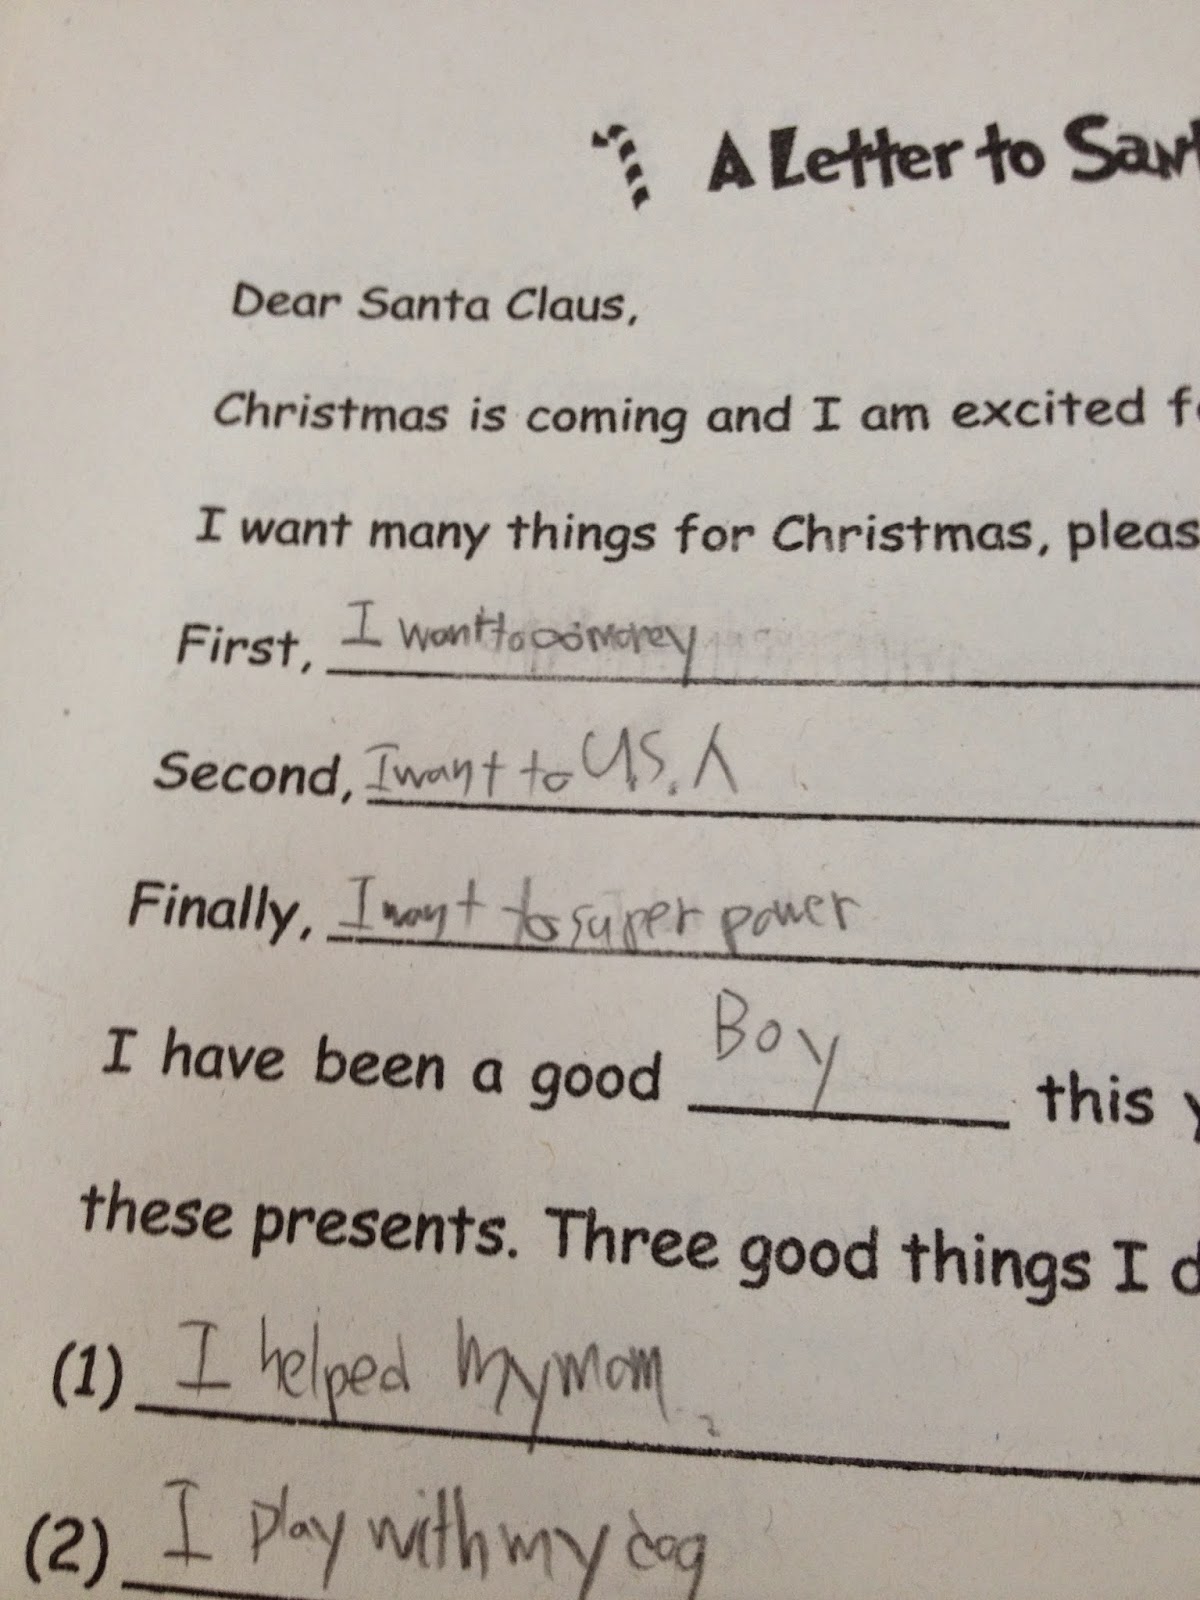 A Letter to Sant
Dear Santa Claus,
Christmas is coming and I am excited f
I want many things for Christmas, pleas
First, I want to ∞ money
Second, I want to U.S.A
Finally, I want to super power
I have been a good Boy this y
these presents. Three good things I d
(1) I helped my mom.
(2) I play with my dog